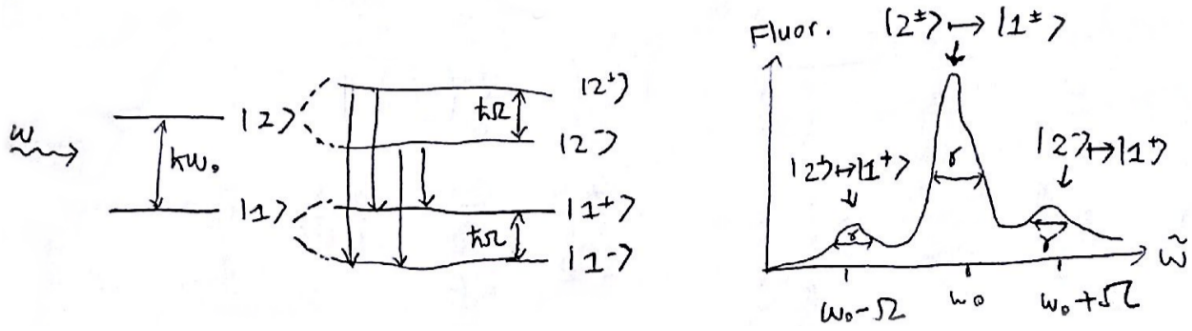 ω
ħω₀
|2⟩
|1⟩
|2⁺⟩
ħΩ
|2⁻⟩
|1⁺⟩
ħΩ
|1⁻⟩
Fluor.
|2^±⟩ ↦ |1^±⟩
|2⁺⟩ ↦ |1⁺⟩
|2⁻⟩ ↦ |1⁺⟩
γ
γ
γ
ω₀-Ω
ω₀
ω₀+Ω
ω̃